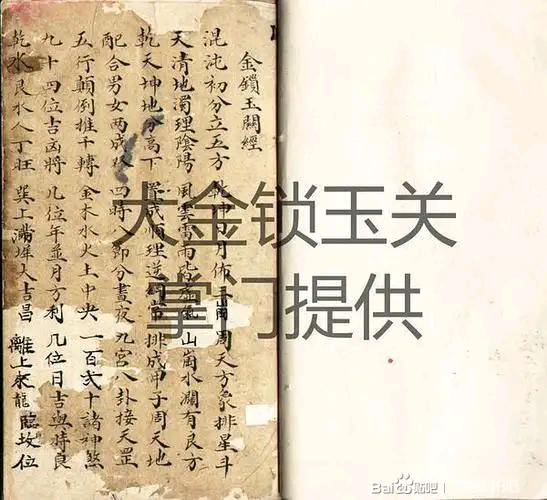 金鎖玉關經
混沌初分立五方 乾坤日月佈 周天方象排星斗
天清地濁理陰陽 風雲雷雨皆氣 山崗水濶有良方
乾天坤地分高下 成順理逆常 排成甲子周天地
配合男女兩成 四時八節分晝夜 九宮八卦接天罡
五行顛倒推千轉 金木水火土中央 一百弍十諸神煞
九十四位吉凶將 几位年並月方利 几位日吉與時良
乾水艮水人丁旺 巽上滿堆大吉昌 離上來龍臨坟位
大金锁玉关
掌门提供
Bai 贴吧